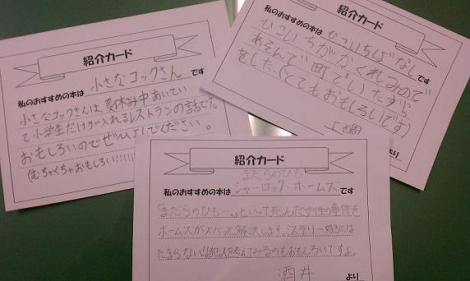 紹介カード
私のおすすめの本は 小さなコックさん です
小さなコックさんは、夏休み中あいてい
て小学生だけが入れるレストランの話です。
おもしろいのでぜひよんでください。
(むちゃくちゃおもしろい!!!!!
紹介カード
私のおすすめの本は ひこいちばなし
ひこいちがかくれみので
あそんで町でいたずら
をした。(とてもおもしろいです)
より
紹介カード
まだらのひも
私のおすすめの本は シャーロック・ホームズ です
「まだらのひも…」といって死んだ女性の事件を
ホームズがズバッと解決します。ミステリー好きには
たまらない
酒井 より